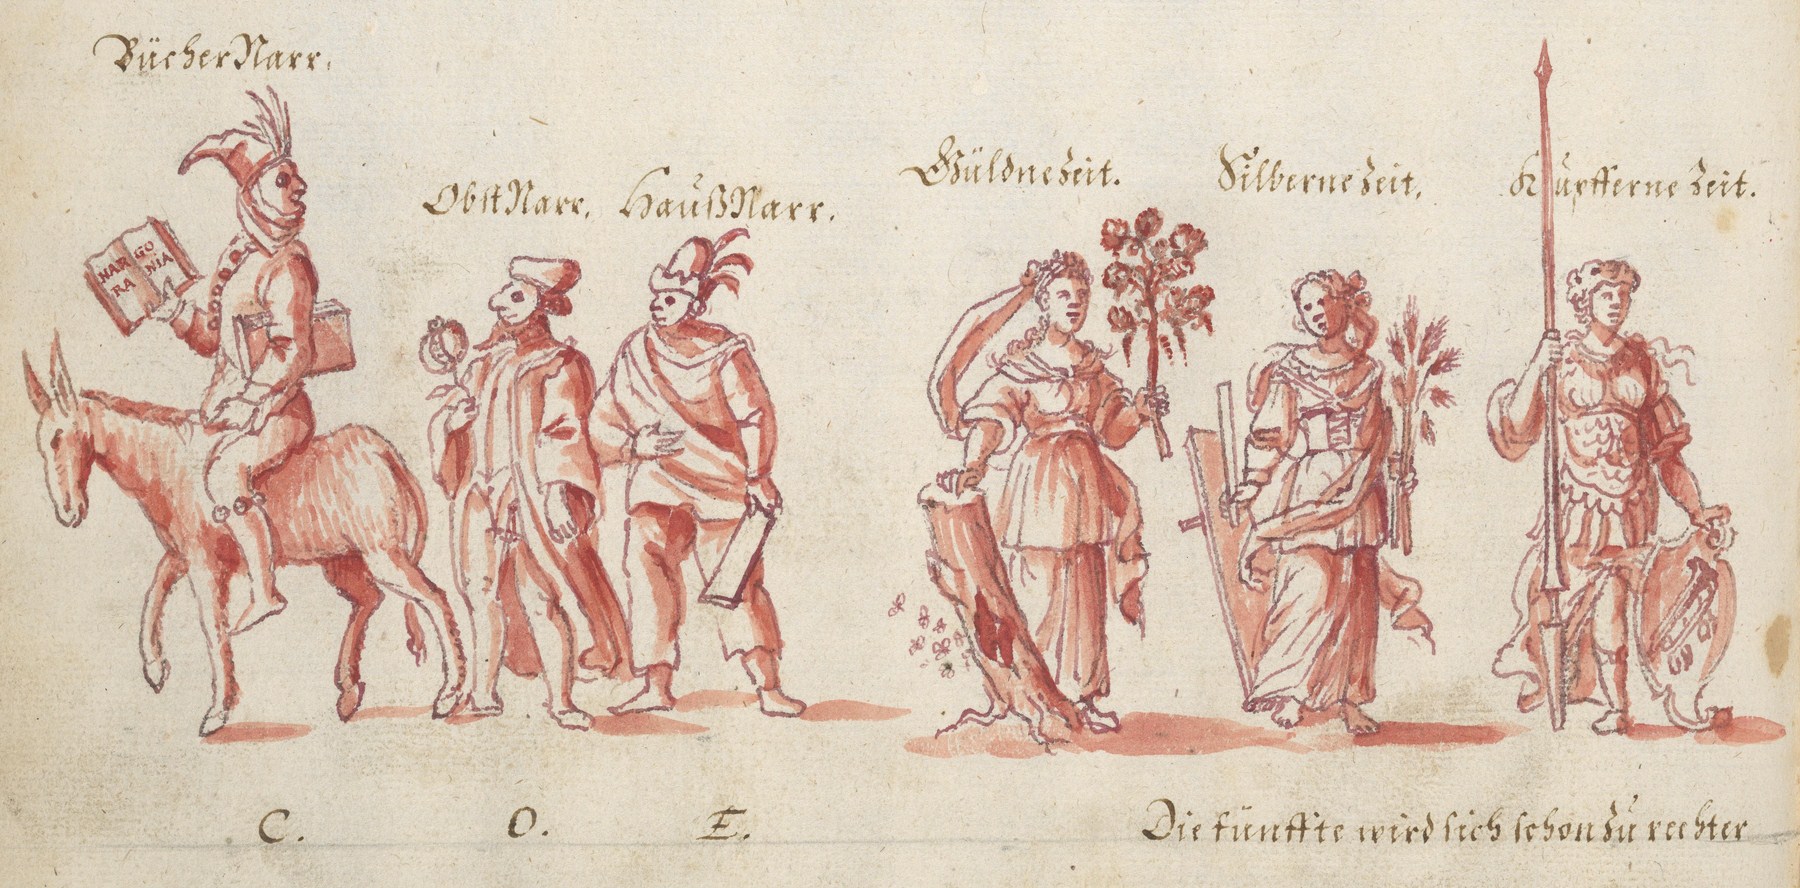 BücherNarr.
NAR GO
RA NIA
ObstNarr.
HaußNarr.
GüldneZeit.
SilberneZeit.
Kupfferne Zeit.
C.
O.
E.
Die fünffte wird sich schon zu rechter